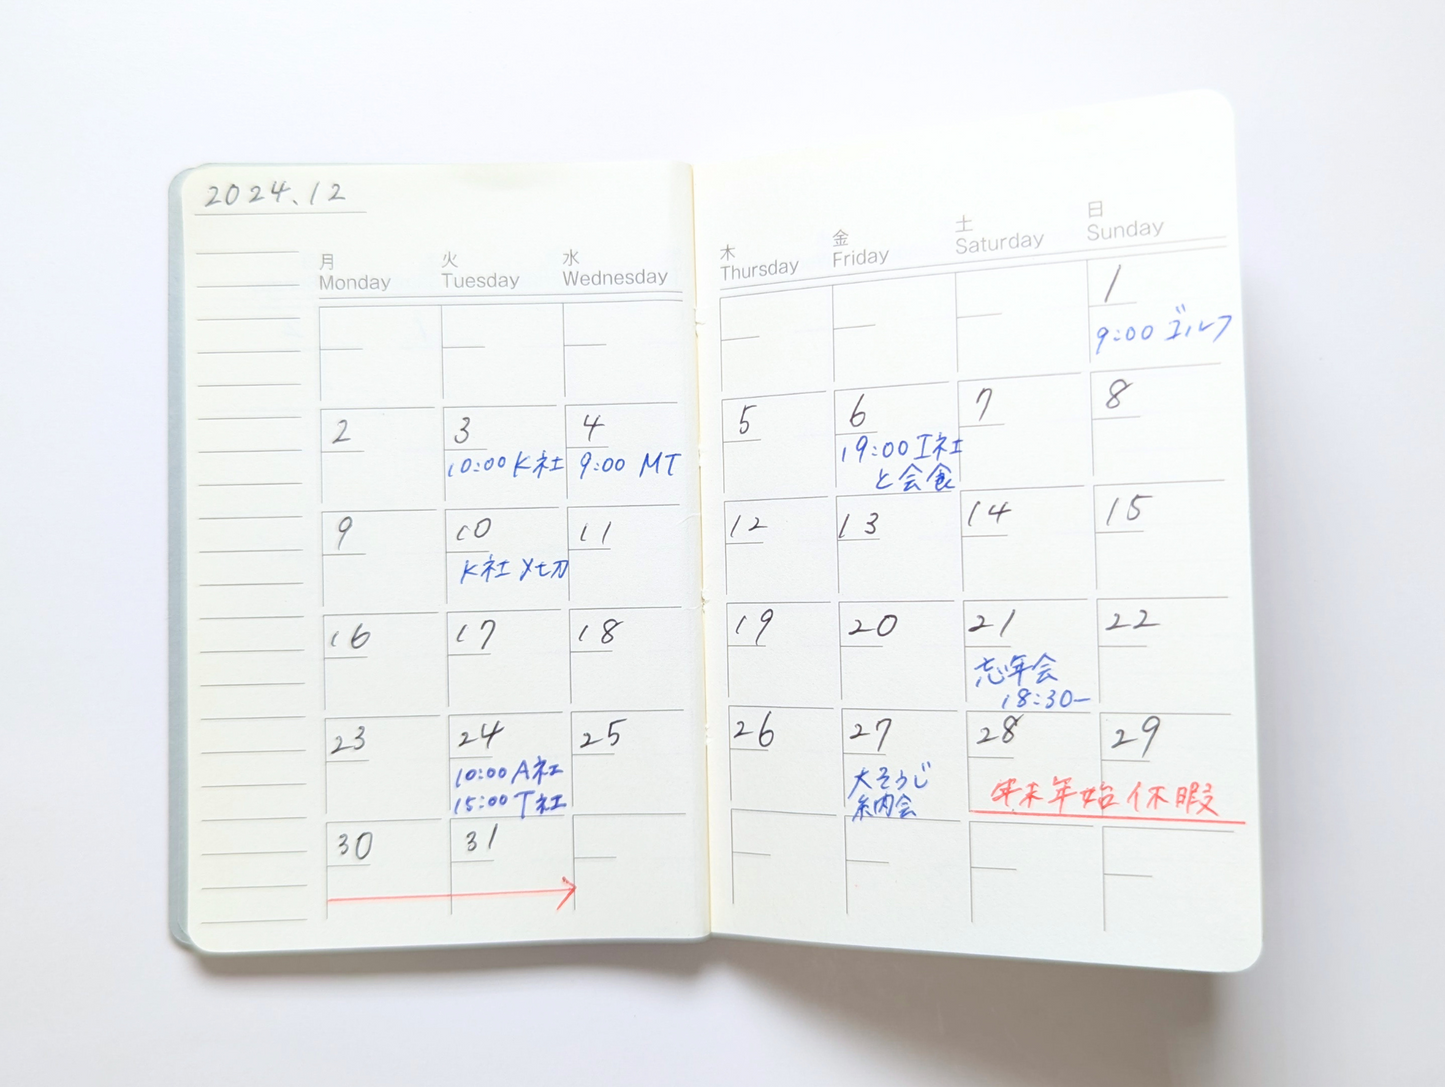 2024.12
月 火 水 木 金 土 日
Monday Tuesday Wednesday Thursday Friday Saturday Sunday
1
9:00 ゴルフ
2 3 4 5 6 7 8
10:00 K社 9:00 MT 19:00 I社
と会食
9 10 11 12 13 14 15
K社 〆切
16 17 18 19 20 21 22
忘年会
18:30-
23 24 25 26 27 28 29
10:00 A社 大そうじ 年末年始休暇
15:00 T社 納会
30 31